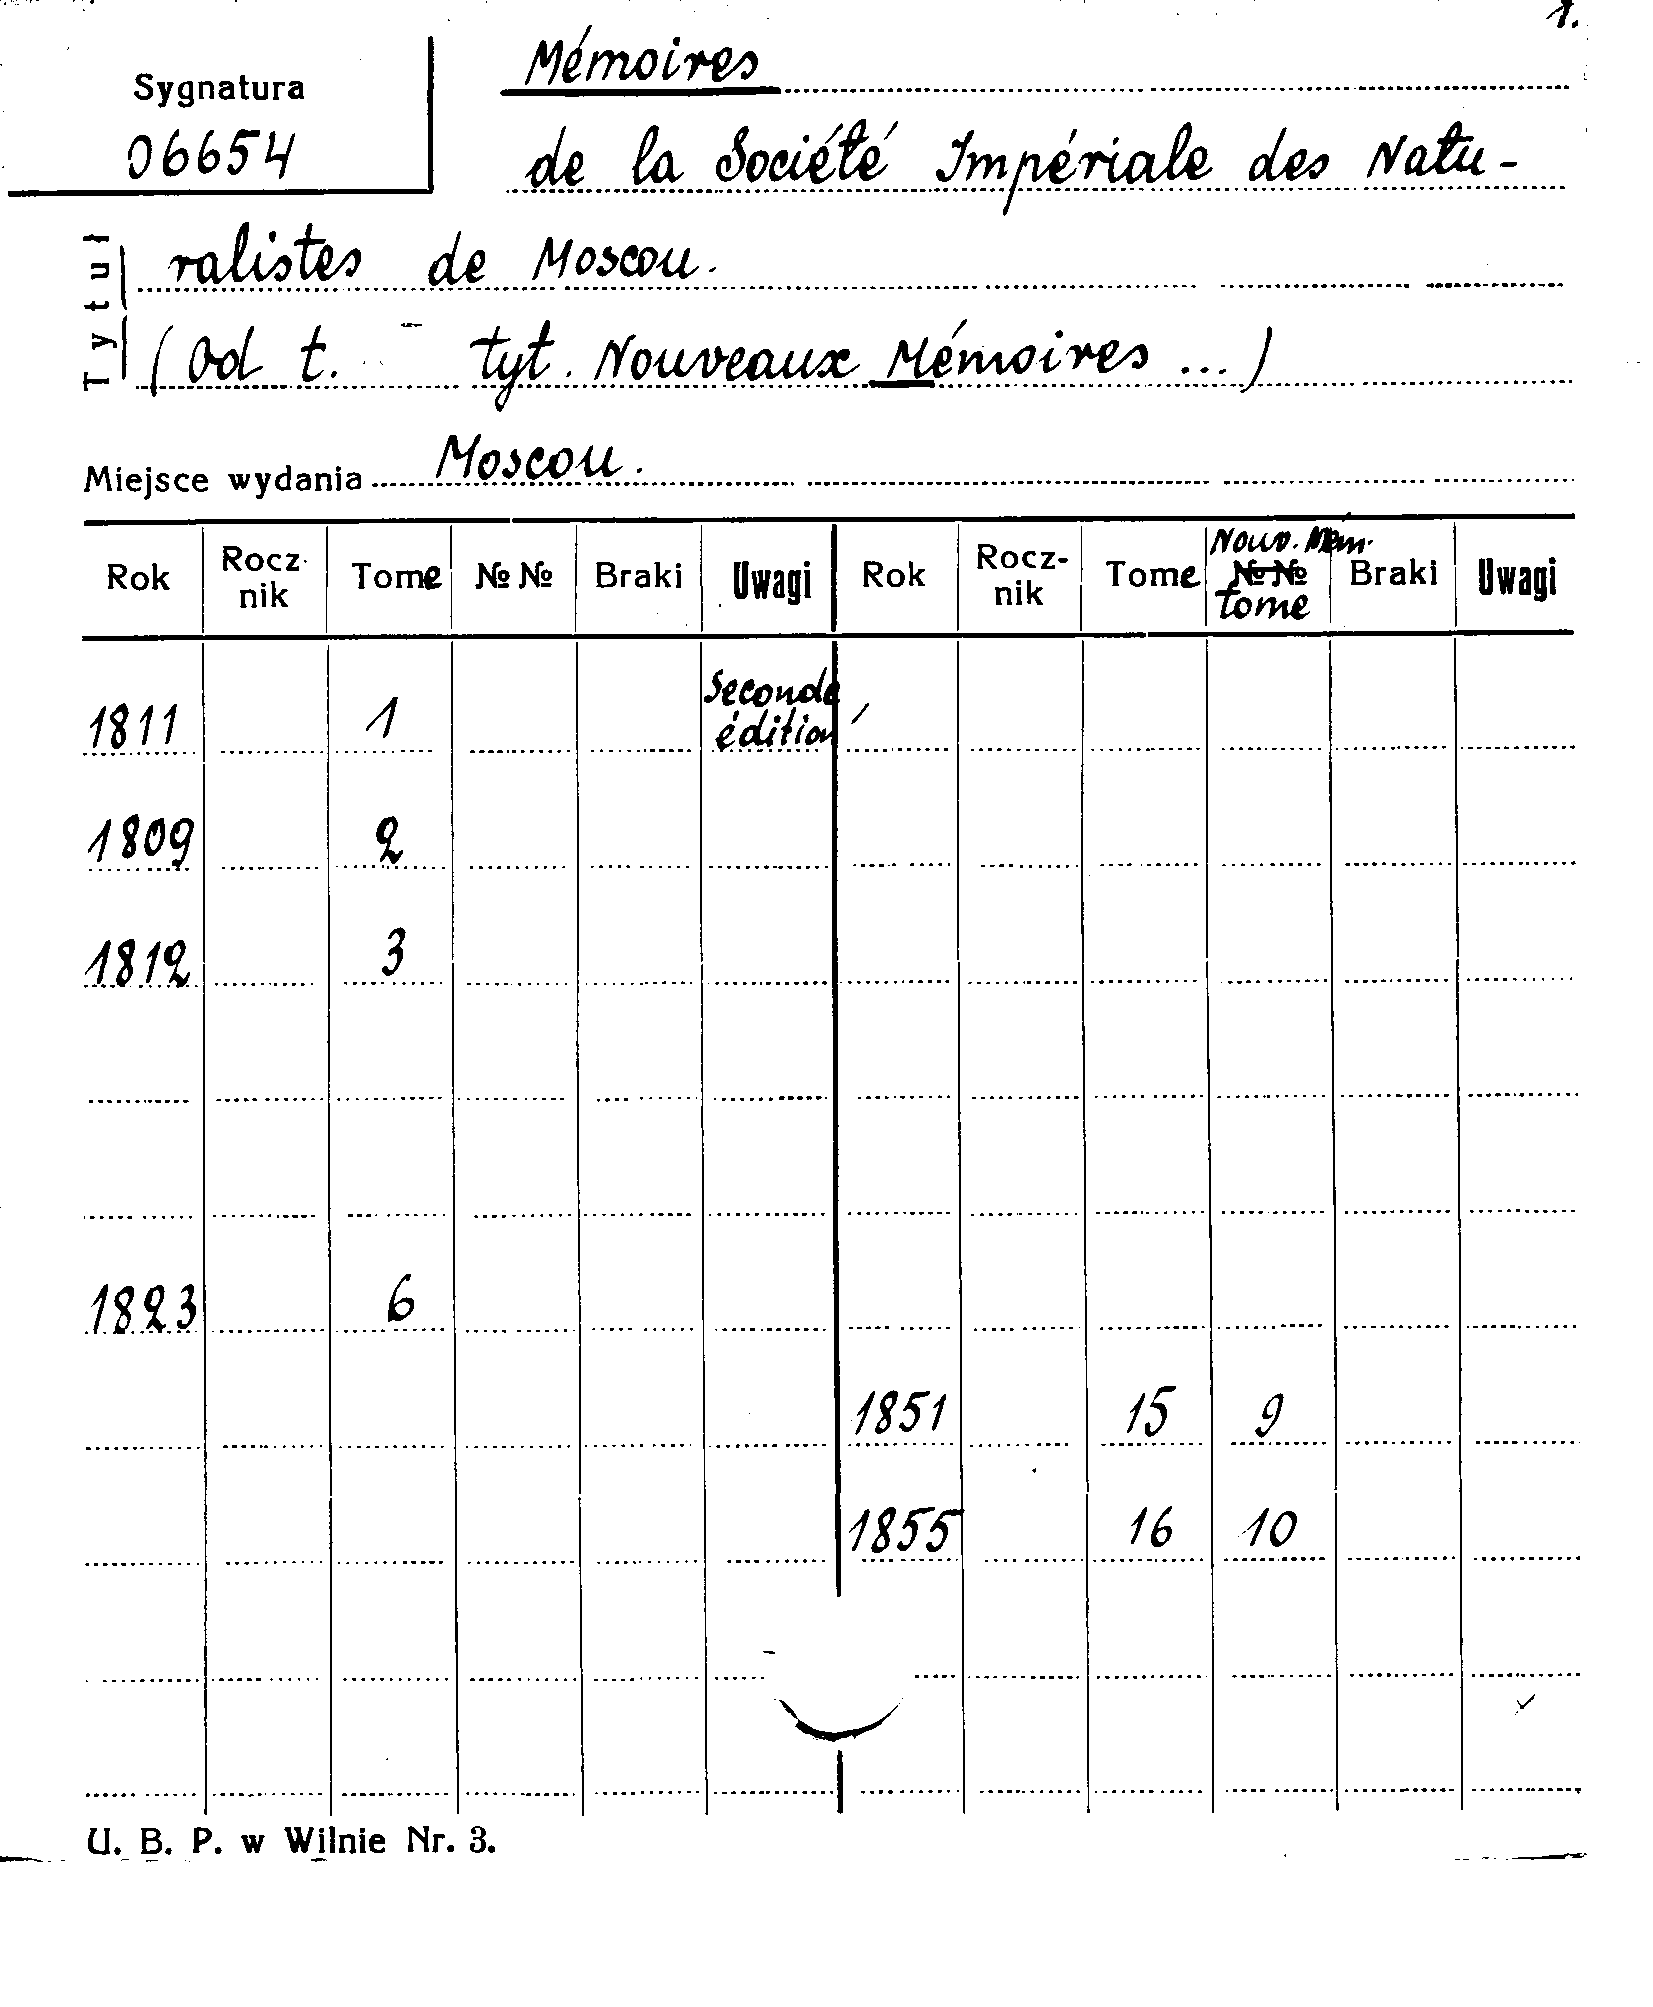 1.
Sygnatura
06654
Mémoires
de la Société Impériale des Natu-
Tytuł
ralistes de Moscou.
(Od t. tyt. Nouveaux Mémoires ...)
Miejsce wydania Moscou.
Rok Rocz-nik Tome №№ Braki Uwagi Rok Rocz-nik Tome Nouv. Mém. №№ tome Braki Uwagi
1811 1 Seconde édition
1809 2
1812 3
1823 6
1851 15 9
1855 16 10
U. B. P. w Wilnie Nr. 3.